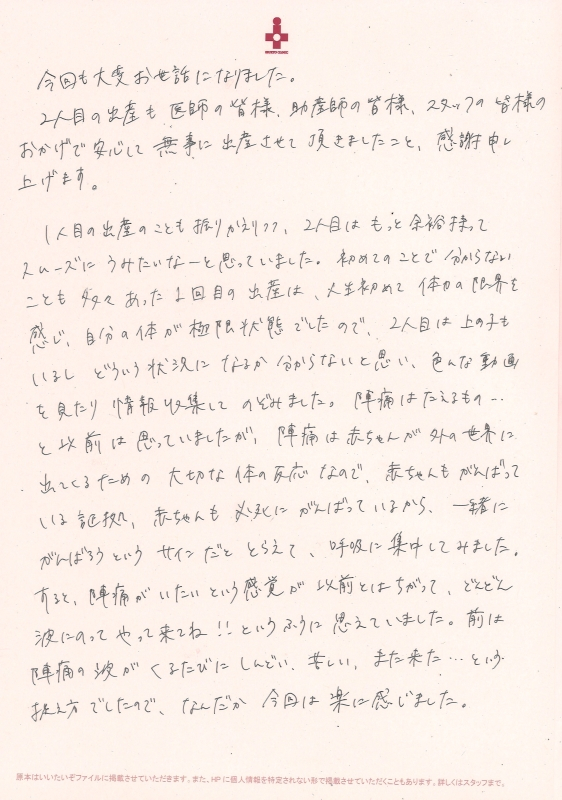 今回も大変お世話になりました。
2人目の出産も医師の皆様、助産師の皆様、スタッフの皆様の
おかげで安心して無事に出産させて頂きましたこと、感謝申し
上げます。
1人目の出産のことも振りかえりつつ、2人目はもっと余裕持って
スムーズにうみたいなーと思っていました。初めてのことで分からない
ことも多々あった1回目の出産は、人生初めて体力の限界を
感じ、自分の体が極限状態でしたので、2人目は上の子も
いるしどういう状況になるか分からないと思い、色んな動画
を見たり情報収集してのぞみました。陣痛はたえるもの…
と以前は思っていましたが、陣痛は赤ちゃんが外の世界に
出てくるための大切な体の反応なので、赤ちゃんもがんばって
いる証拠、赤ちゃんも必死にがんばっているから、一緒に
がんばろうというサインだととらえて、呼吸に集中してみました。
すると、陣痛がいたいという感覚が以前とはちがって、どんどん
波にのってやって来てね!!というふうに思えていました。前は
陣痛の波がくるたびにしんどい、苦しい、また来た…という
捉え方でしたので、なんだか今回は楽に感じました。
原本はいいたいぞファイルに掲載させていただきます。また、HPに個人情報を特定されない形で掲載させていただくこともあります。詳しくはスタッフまで。